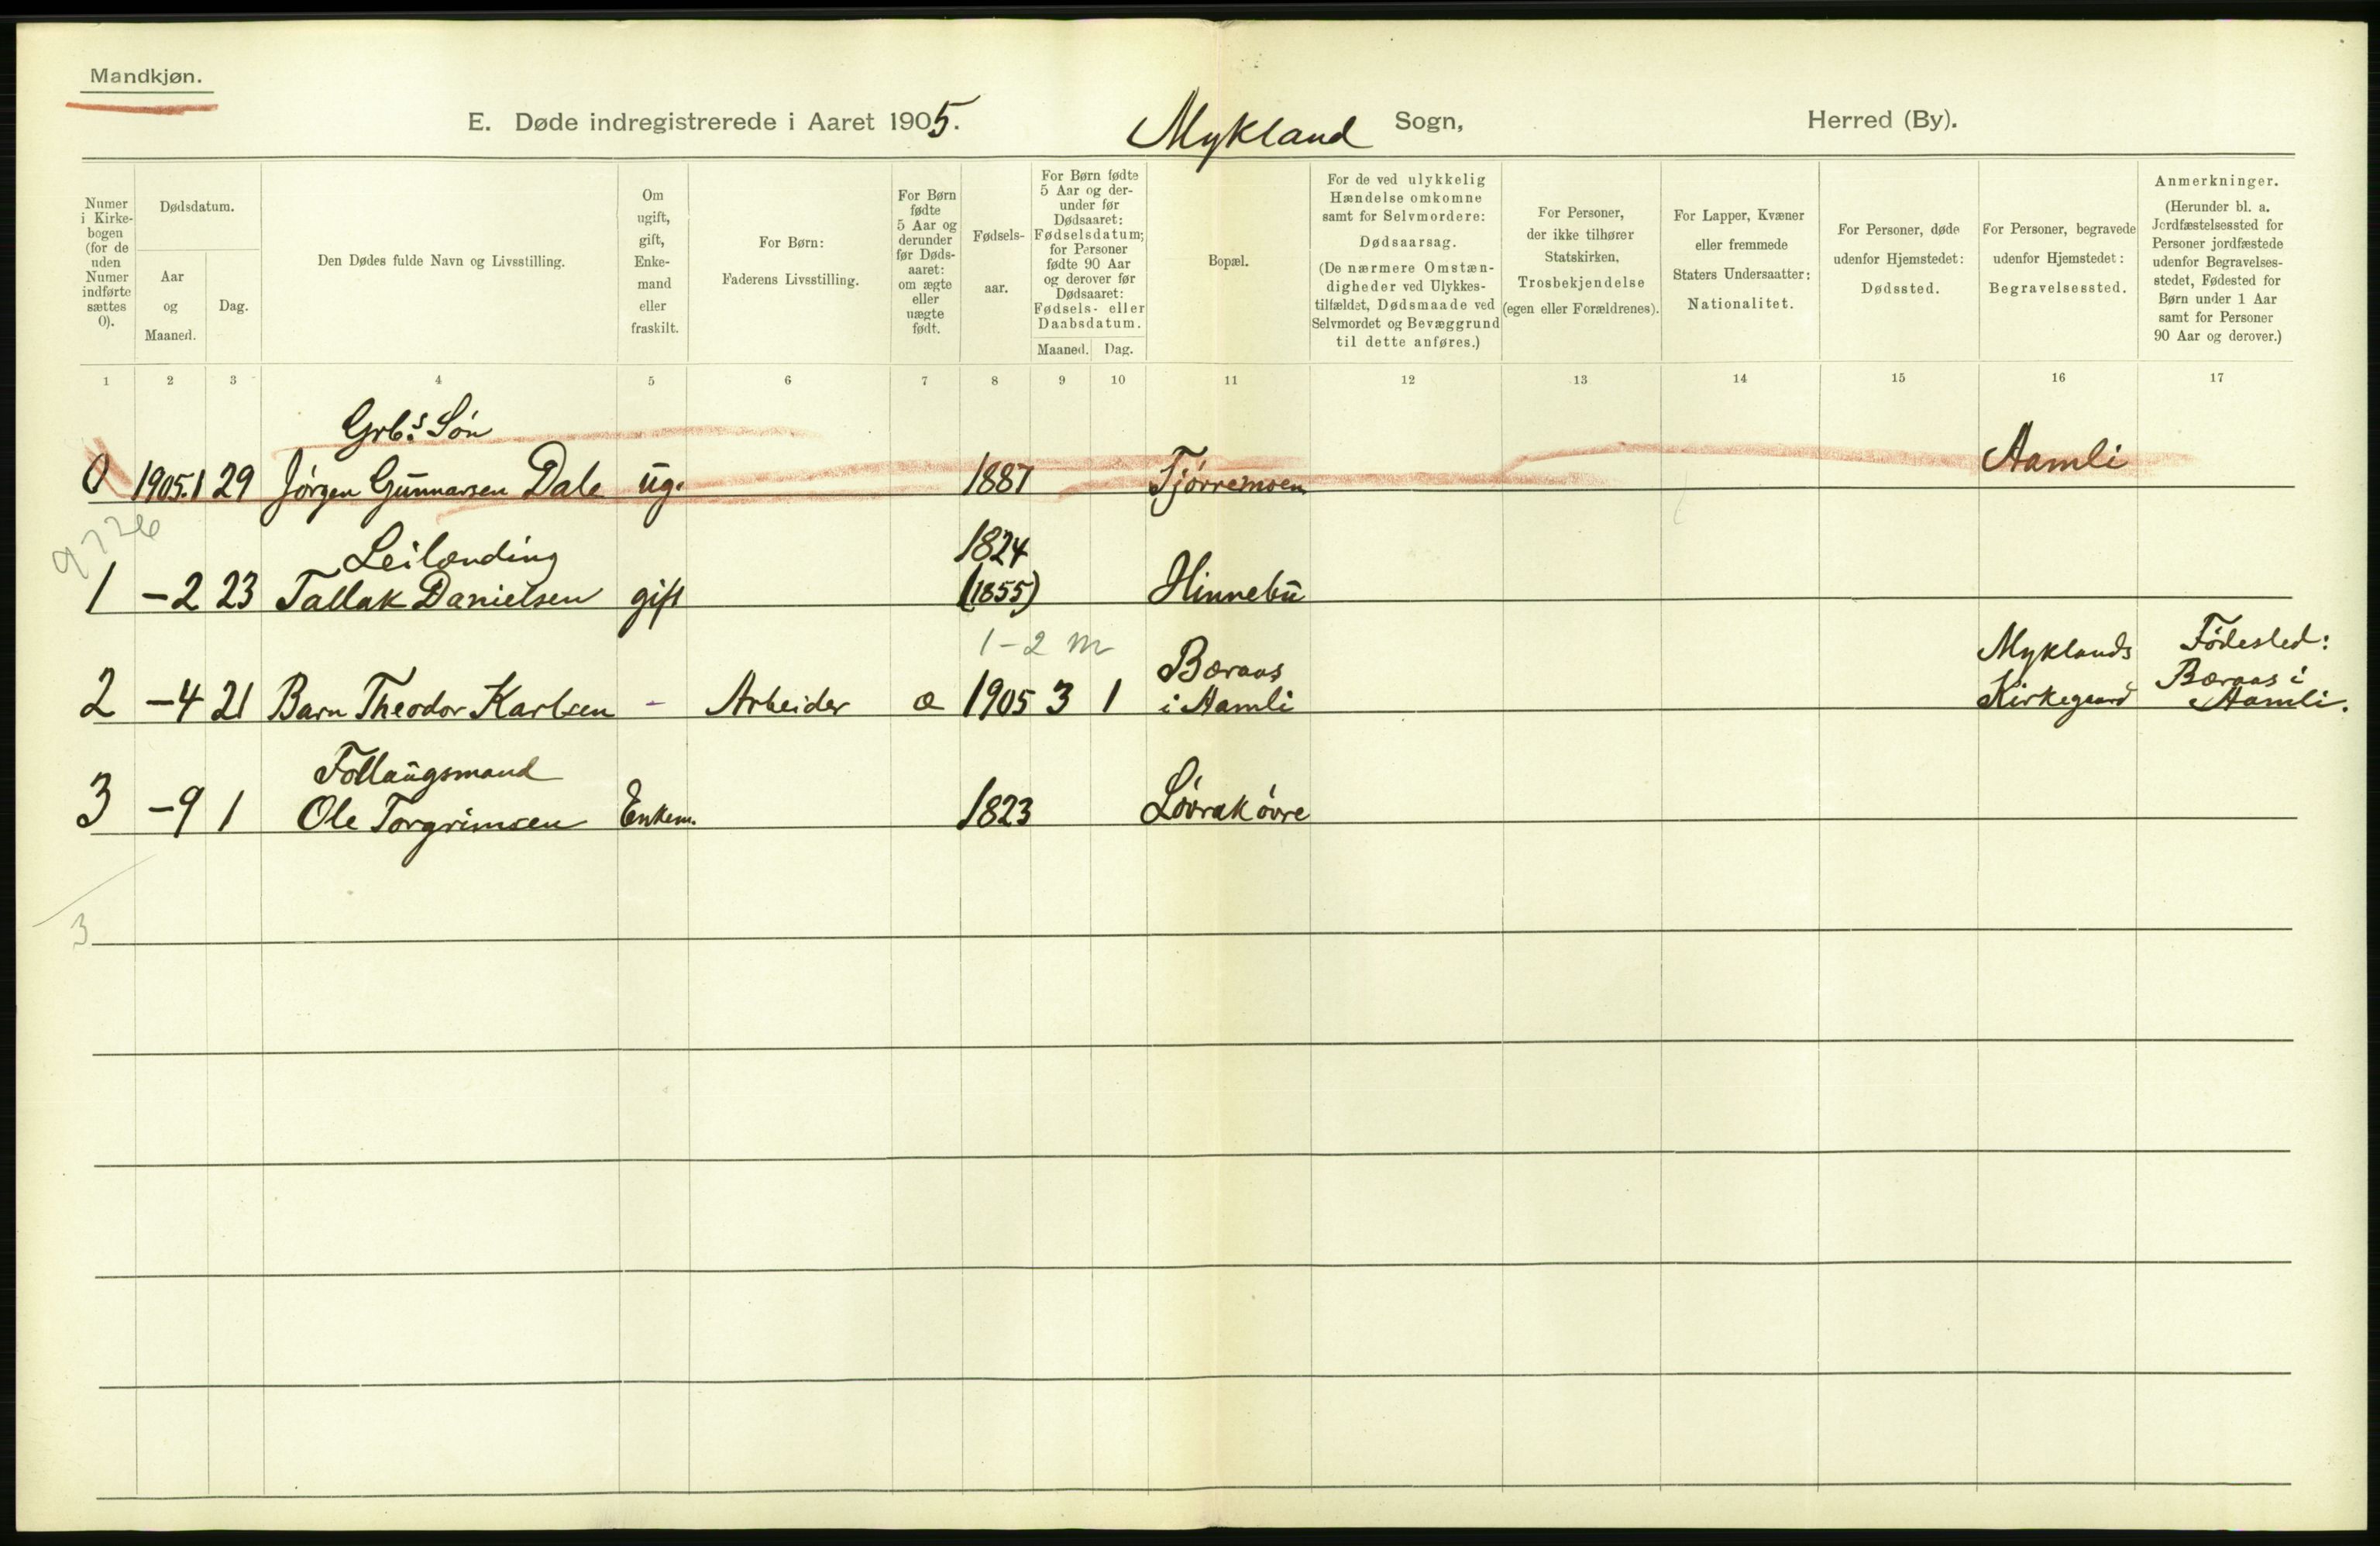 Mandkjøn.
E. Døde indregistrerede i Aaret 1905. Mykland Sogn, Herred (By).
Numer i Kirke-bogen (for de uden Numer indførte sættes 0).
Dødsdatum.
Aar og Maaned.
Dag.
Den Dødes fulde Navn og Livsstilling.
Om ugift, gift, Enke-mand eller fraskilt.
For Børn: Faderens Livsstilling.
For Børn fødte 5 Aar og derunder før Døds-aaret: om ægte eller uægte født.
Fødsels-aar.
For Børn fødte 5 Aar og der-under før Dødsaaret: Fødselsdatum; for Personer fødte 90 Aar og derover før Dødsaaret: Fødsels- eller Daabsdatum.
Maaned. Dag.
Bopæl.
For de ved ulykkelig Hændelse omkomne samt for Selvmordere: Dødsaarsag. (De nærmere Omstæn-digheder ved Ulykkes-tilfældet, Dødsmaade ved Selvmordet og Bevæggrund til dette anføres.)
For Personer, der ikke tilhører Statskirken, Trosbekjendelse (egen eller Forældrenes).
For Lapper, Kvæner eller fremmede Staters Undersaatter: Nationalitet.
For Personer, døde udenfor Hjemstedet: Dødssted.
For Personer, begravede udenfor Hjemstedet: Begravelsessted.
Anmerkninger. (Herunder bl. a. Jordfæstelsessted for Personer jordfæstede udenfor Begravelses-stedet, Fødested for Børn under 1 Aar samt for Personer 90 Aar og derover.)
1 2 3 4 5 6 7 8 9 10 11 12 13 14 15 16 17
Grb.s Søn
0 1905.1 29 Jórgen Gunnarsen Dale ug. 1887 Tjórremoen Aamli
Leilænding 1824
1 - 2 23 Tallak Danielsen gift (1855) Hinnebu
1-2 m
Bæraas Myklands Fódested:
2 - 4 21 Barn Theodor Karlsen - Arbeider æ 1905 3 1 i Aamli Kirkegaard Bæraas i Aamli.
Follaugsmand
3 - 9 1 Ole Torgrimsen Enkem. 1823 Lóvrak óvre
3